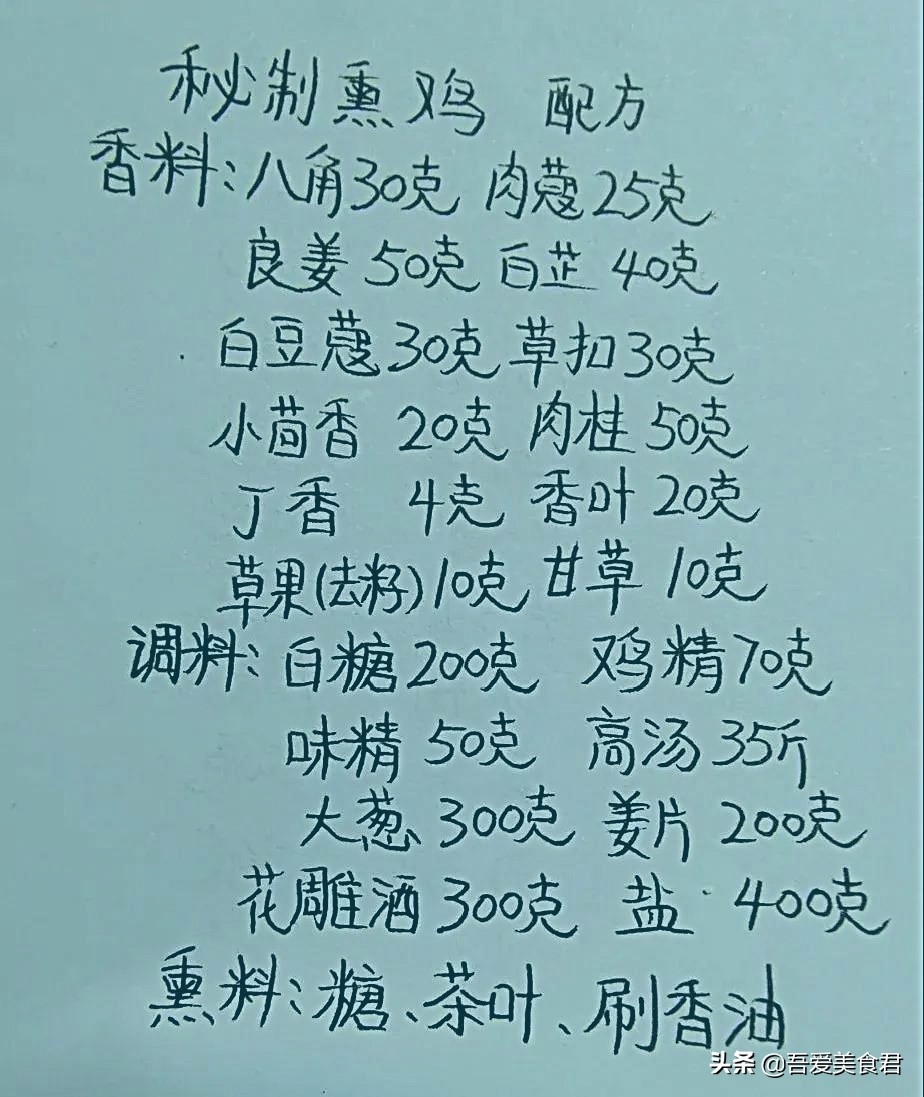 秘制熏鸡 配方
香料:八角30克 肉蔻25克
良姜 50克 白芷 40克
白豆蔻30克 草扣30克
小茴香 20克 肉桂 50克
丁香 4克 香叶 20克
草果(去籽)10克 甘草 10克
调料:白糖200克 鸡精70克
味精 50克 高汤 35斤
大葱 300克 姜片 200克
花雕酒300克 盐 400克
熏料:糖、茶叶、刷香油
头条 @吾爱美食君